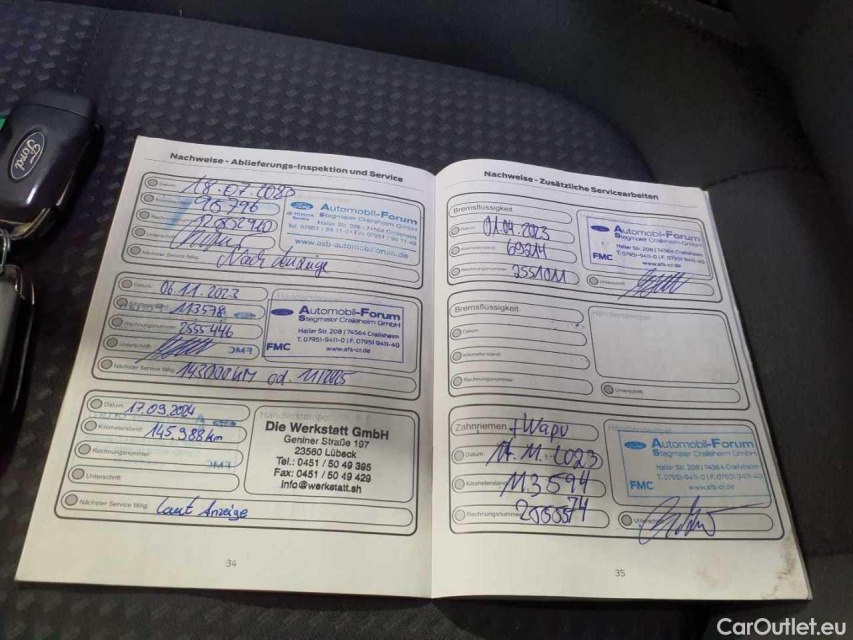 Ford
Nachweise - Ablieferungs-Inspektion und Service
Datum
95796
Nach Anzeige
Ford
Automobil-Forum
Stegmaier Crailsheim GmbH
Haller Str. 208 - 74564 Crailsheim
www.asb-automobil-forum.de
Nächster Service fällig
Datum
06.11.2023
113578
Rechnungsnummer
2555446
Unterschrift
Nächster Service fällig
143000 KM od. 11/2025
Ford
Automobil-Forum
Stegmaier Crailsheim GmbH
Haller Str. 208 | 74564 Crailsheim
T. 07951-9411-0 | F. 07951-9411-40
FMC
www.afs-cr.de
Datum
17.09.2024
Kilometerstand
145.988 km
Rechnungsnummer
Unterschrift
Nächster Service fällig
laut Anzeige
Die Werkstatt GmbH
Geniner Straße 197
23560 Lübeck
Tel.: 0451 / 50 49 395
Fax: 0451 / 50 49 429
info@werkstatt.sh
34
Nachweise - Zusätzliche Servicearbeiten
Bremsflüssigkeit
Datum
01.04.2023
Kilometerstand
69214
Rechnungsnummer
2551011
Ford
Automobil-Forum
Stegmaier Crailsheim GmbH
Haller Str. 208 | 74564 Crailsheim
T. 07951-9411-0 | F. 07951-9411-40
FMC
www.afs-cr.de
Unterschrift
Bremsflüssigkeit
Datum
Kilometerstand
Rechnungsnummer
Unterschrift
Zahnriemen + Wapu
Datum
Kilometerstand
113594
Rechnungsnummer
Ford
Automobil-Forum
Stegmaier Crailsheim GmbH
Haller Str. 208 | 74564 Crailsheim
T. 07951-9411-0 | F. 07951-9411-40
FMC
www.afs-cr.de
Unterschrift
35
CarOutlet.eu